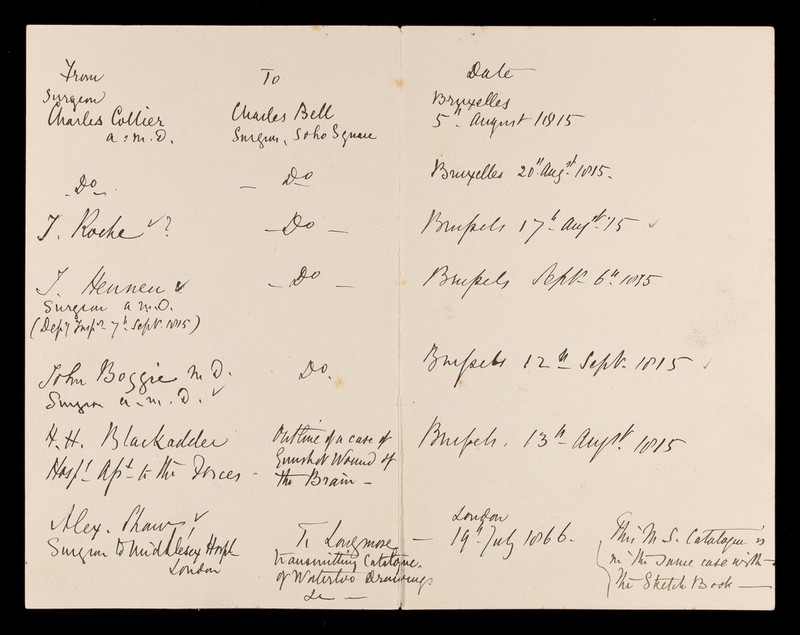 From To Date
Surgeon Bruxelles
Charles Collier Charles Bell 5th August 1815
a: m. D. Surgeon, Soho Square
Do Do Bruxelles 20th Augst 1815.
J. Roche ✓? Do Brussels 17th Augst '15 ✓
J. Hennen ✓ Do Brussels Septr 6th 1815
Surgeon a m.D.
(Depy Inspr 7th Septr 1815)
John Boggie M D. Do. Brussels 12th Septr 1815 ✓
Surgeon a. m. D. ✓
H. H. Blackadder Outline of a case of Brussels. 13th Augst. 1815
Hospl Asst to the Forces - Gunshot Wound of
the Brain -
Alex. Shaw ✓ To Longmore - London
Surgeon to Middlesex Hospl transmitting Catalogue 19th July 1866. This M.S. Catalogue is
London of Waterloo Drawings in the same case with
&c - the Sketch Book -